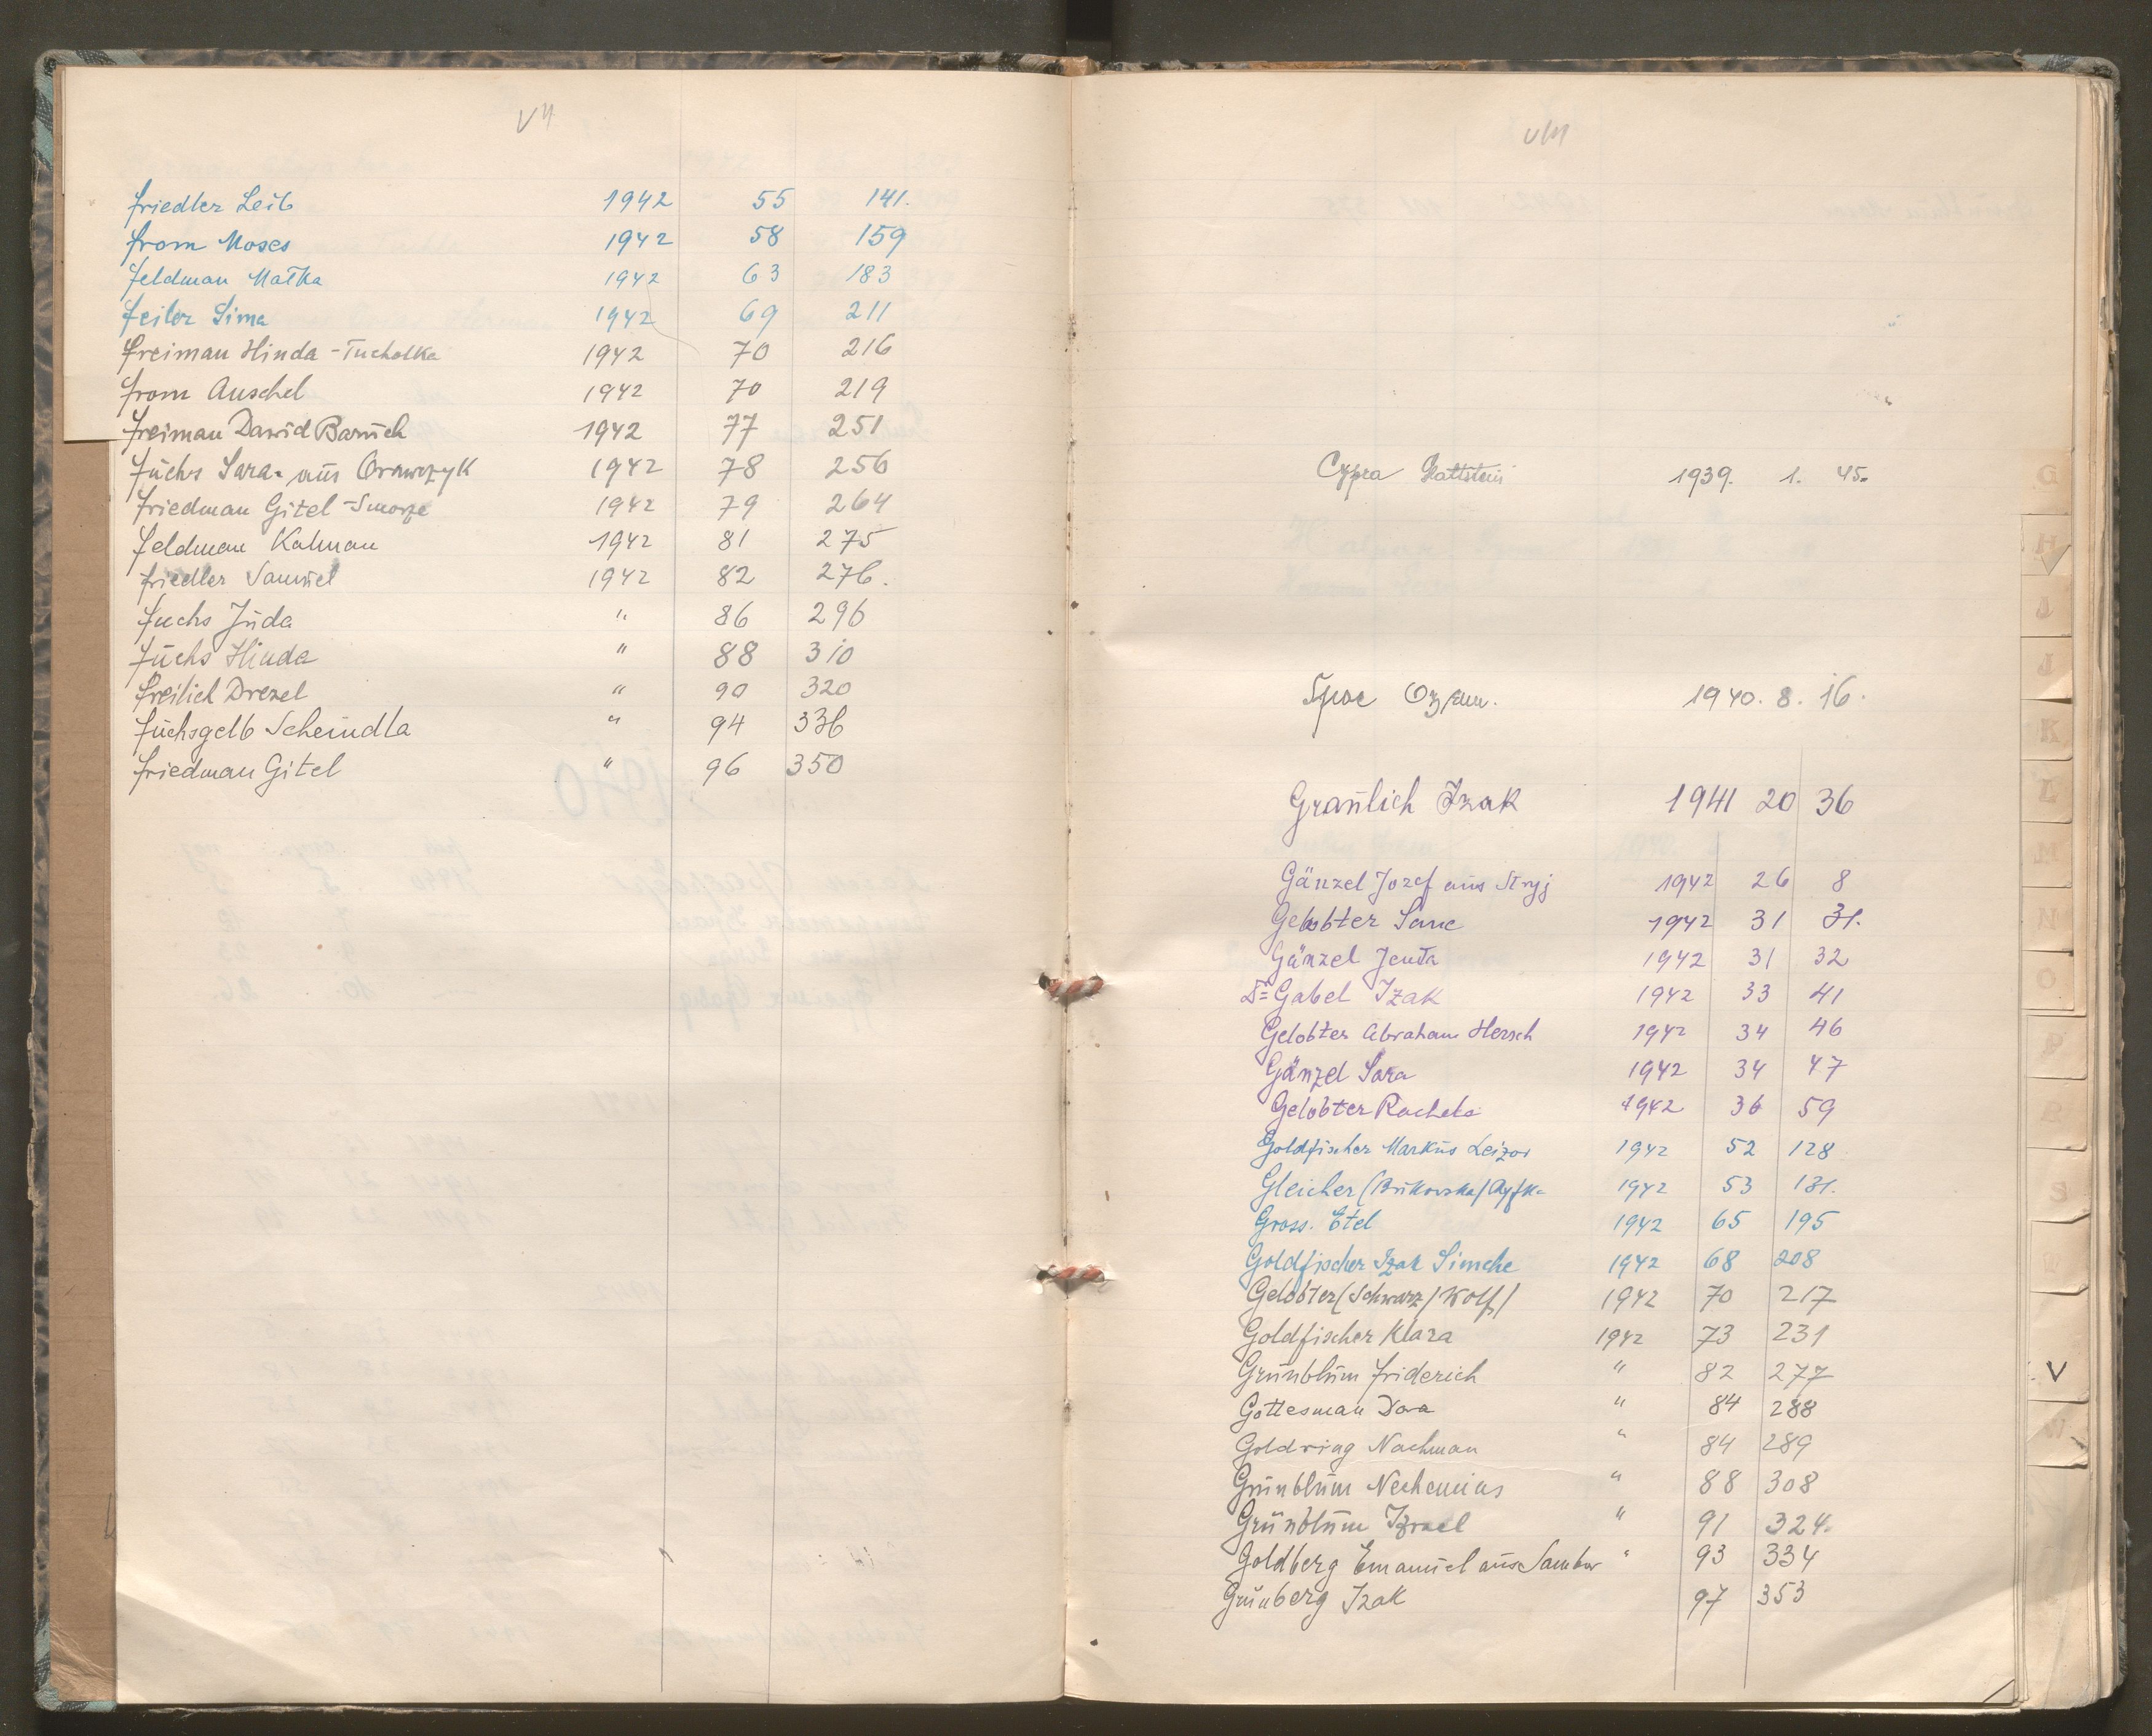 Friedler Leib 1942 55 141.
From Moses 1942 58 159
Feldman Matka 1942 63 183
Feiler Sima 1942 69 211
Freiman Hinda - Tucholka 1942 70 216
From Anschel 1942 70 219
Freiman Dawid Baruch 1942 77 251
Fuchs Sara - aus Orawczyk 1942 78 256
Friedman Gitel - Smorze 1942 79 264
Feldman Kalman 1942 81 275
Friedler Samuel 1942 82 276.
Fuchs Juda " 86 296
Fuchs Hinda " 88 310
Freilich Drezel " 90 320
Fuchsgelb Scheindla " 94 336
Friedman Gitel " 96 350
1939. 1. 45.
1940. 8. 16.
Graulich Izak 1941 20 36
Gänzel Jozef aus Stryj 1942 26 8
Gelobter Sane 1942 31 31.
Gänzel Jenta 1942 31 32
Gabel Izak 1942 33 41
Gelobter Abraham Hersch 1942 34 46
Gänzel Sara 1942 34 47
Gelobter Rachela 1942 36 59
Goldfischer Markus Leizor 1942 52 128
Gleicher 1942 53 131.
Gross. Etel 1942 65 195
Goldfischer Izak Simche 1942 68 208
Gelobter (Schwarz) Wolf 1942 70 217
Goldfischer Klara 1942 73 231
Grünblum Friderich " 82 277
Gottesman Dora " 84 288
Goldring Nachman " 84 289
Grünblum Nechemias " 88 308
Grünblum Izrael " 91 324.
Goldberg Emanuel aus Sambor " 93 334
Grünberg Izak 97 353
V